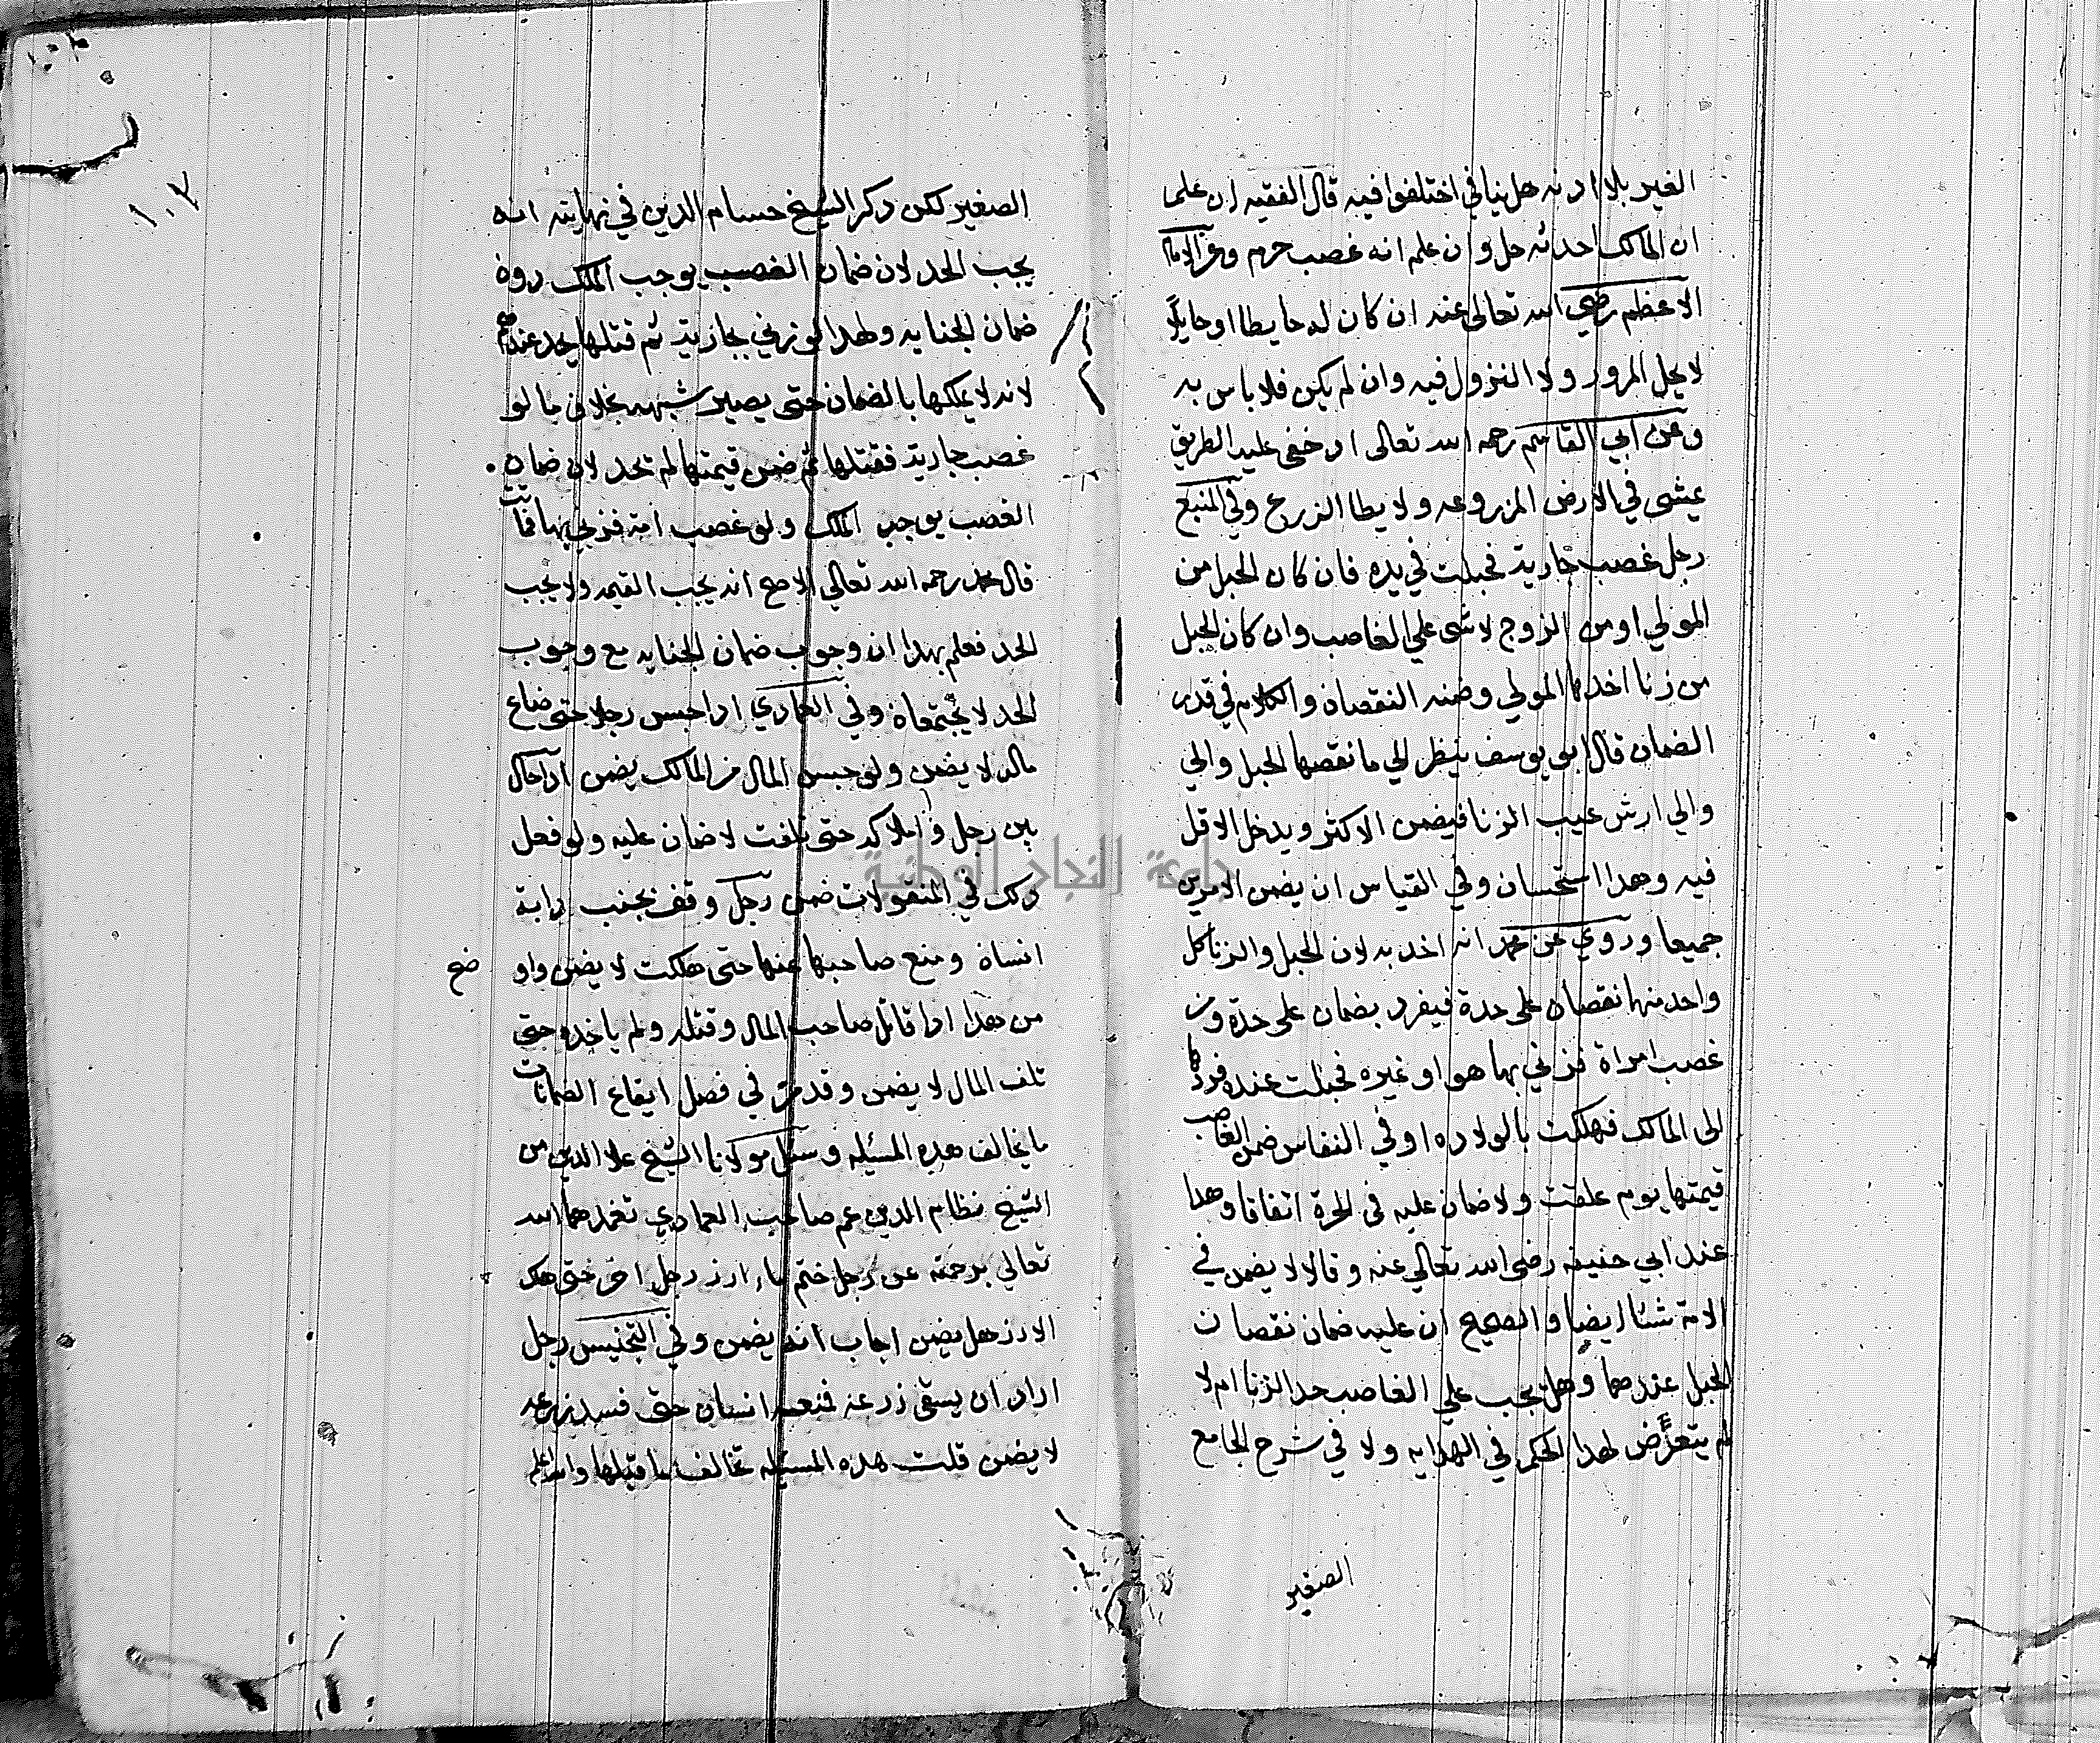 الغير بلا اذنه هل ينافي اختلفوا فيه قال الفقيه ان علما
ان المالك احدثه حل وان علم انه غصب حرم وعن الاما
الاعظم رضي الله تعالى عنه ان كان له حايطا او حايلا
لا يحل المرور ولا النزول فيه وان لم يكن فلا باس به
وعن ابي القاسم رحمه الله تعالى اد خفي عليه الطريق
يمشى في الارض المزروعه ولا يطا الزرع وفي المنبع
رجل غصب جارية فحبلت في يده فان كان الحبل من
المولي او من الزوج لا شى علي الغاصب وان كان الحبل
من زنا اخدها المولي وضنه النقصان والكلام في قدر
الضمان قال ابو يوسف ينظر الي ما نقصها الحبل والي
والي ارش عيب الزنا فيضمن الاكثر ويدخل الاقل
فيه وهدا استحسان وفي القياس ان يضمن الامرين
جميعا وروي عن محمد انه اخد به لان الحبل والزنا كل
واحد منهما نقصان على حدة فيفرد بضمان على حدة ومن
غصب امراة فزني بها هو او غيره فحبلت عنده فردها
الى المالك فهلكت بالولاده او في النفاس ضمن الغاصب
قيمتها يوم علقت ولا ضمان عليه في الحرة اتفاقا وهدا
عند ابي حنيفه رضى الله تعالي عنه وقالا لا يضمن في
الامة شئا ايضا والصحيح ان عليه ضمان نقصان
الحبل عندهما وهل يجب علي الغاصب حد الزنا ام لا
لم يتعرض لهدا الحكم في الهدايه ولا في شرح الجامع
الصغير
١٠٢
الصغير لكن دكر الشيخ حسام الدين في نهايته انه
يجب الحد لان ضمان الغصب يوجب الملك دون
ضمان الجنايه ولهدا لو زني بجارية ثم قتلها يحد عندهم
لانه لا يملكها بالضمان حتى يصير شبهه بخلاف ما لو
غصب جارية فقتلها ثم ضمن قيمتها لم تحد لان ضمان
الغصب يوجب الملك ولو غصب امة فزني بها فماتت
قال محمد رحمه الله تعالي الاصح انه يجب القيمه ولا يجب
الحد فعلم بهدا ان وجوب ضمان الجنايه مع وجوب
الحد لا يجتمعان وفي العمادي ادا حبس رجلا حتى ضاع
ماله لا يضمن ولو حبس المال من المالك يضمن ادا حال
بين رجل واملاكه حتى تلفت لا ضمان عليه ولو فعل
دلك في المنقولات ضمن رجل وقف بجنب دابة
انسان ومنع صاحبها عنها حتى هلكت لا يضمن واو ضح
من هدا ادا قاتل صاحب المال وقتله ولم ياخده حتى
تلف المال لا يضمن وقد مر في فصل ايقاع الضمانات
ما يخالف هده المسئله وسئل مولانا الشيخ علا الدين من
الشيخ نظام الدين عم صاحب العمادي تغمدهما الله
تعالي برحمته عن رجل ختم ماء ارز رجل اخر حتى هلك
الارز هل يضمن اجاب انه يضمن وفي التجنيس رجل
اراد ان يسقى زرعه فمنعه انسان حتى فسد زرعه
لا يضمن قلت هده المسئله تخالف ما قبلها والله اعلم
جامعة النجاح الوطنية